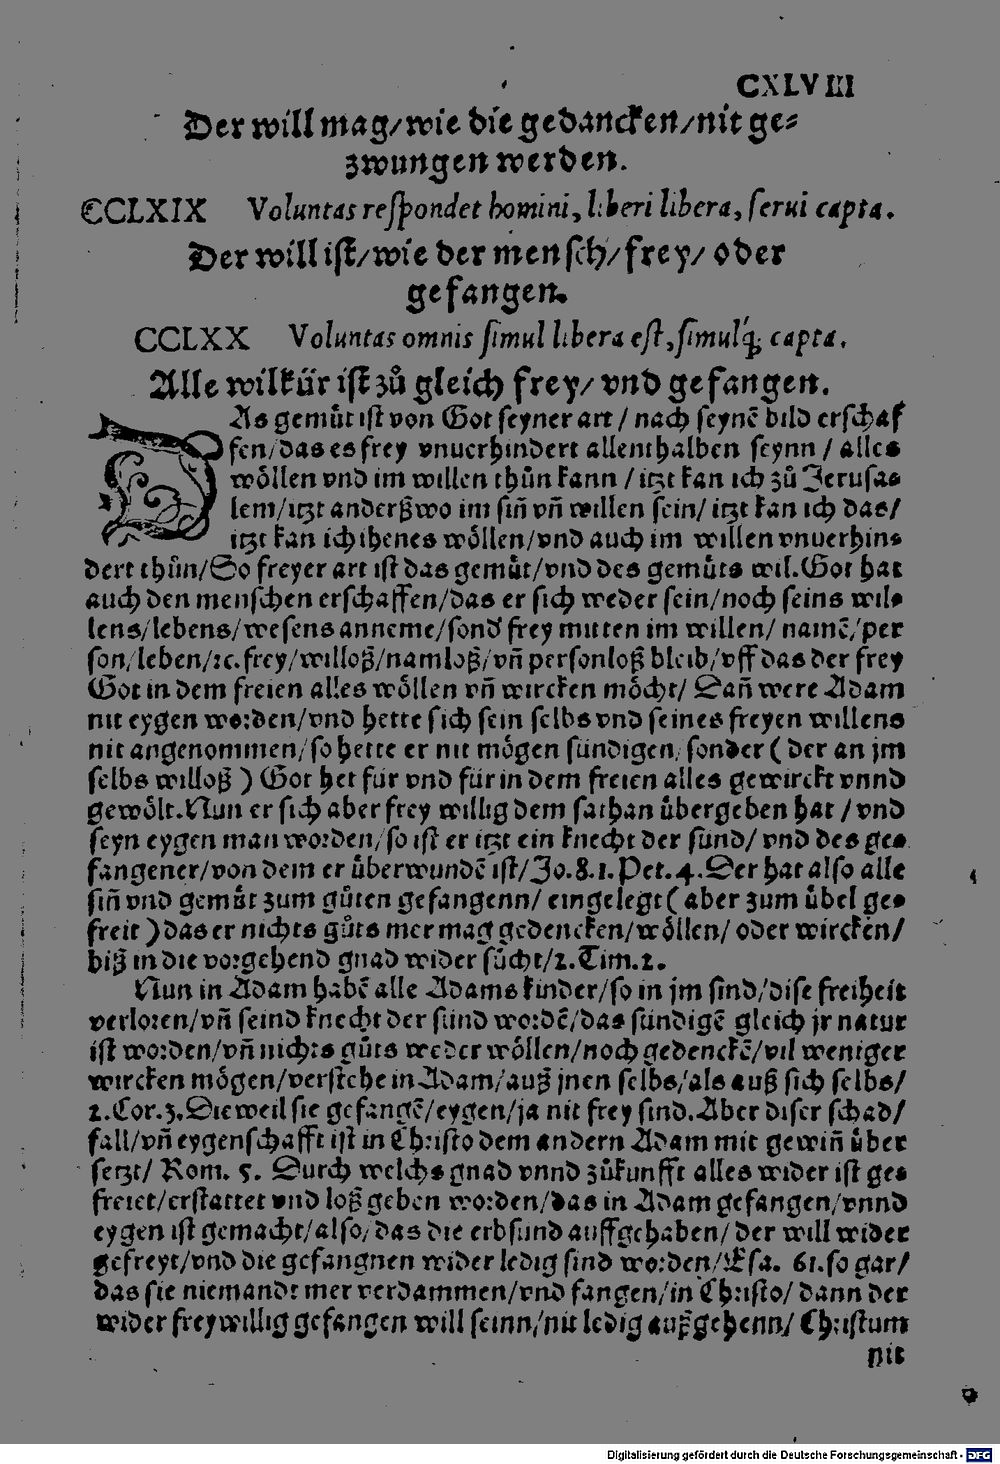 CXLVIII
Der will mag/wie die gedancken/nit ge⸗
zwungen werden.
CCLXIX Voluntas reſpondet homini, liberi libera, ſerui capta.
Der will iſt/wie der menſch/frey/ oder
gefangen.
CCLXX Voluntas omnis ſimul libera eſt, ſimulq́; capta.
Alle wilkür iſt zů gleich frey/ vnd gefangen.
DAs gemůt iſt von Got ſeyner art / nach ſeynē bild erſchaf
fen/das es frey vnuerhindert allenthalben ſeynn / alles
wöllen vnd im willen thůn kann / itzt kan ich zů Jeruſa⸗
lem/itzt anderßwo im ſiñ vñ willen ſein/ itzt kan ich das/
itzt kan ich ihenes wöllen/vnd auch im willen vnuerhin⸗
dert thůn/So freyer art iſt das gemůt/vnd des gemůts wil.Got hat
auch den menſchen erſchaffen/das er ſich weder ſein/noch ſeins wil⸗
lens/lebens/weſens anneme/ſond' frey mitten im willen/ namē/per
ſon/leben/ꝛc.frey/willoß/namloß/vñ perſonloß bleib/vff das der frey
Got in dem freien alles wöllen vñ wircken möcht/ Dañ were Adam
nit eygen worden/vnd hette ſich ſein ſelbs vnd ſeines freyen willens
nit angenommen/ſo hette er nit mögen ſündigen/ſonder ( der an jm
ſelbs willoß ) Got het für vnd für in dem freien alles gewirckt vnnd
gewölt.Nun er ſich aber frey willig dem ſathan übergeben hat / vnd
ſeyn eygen man worden/ſo iſt er itzt ein knecht der ſünd/ vnd des ge⸗
fangener/von dem er überwundē iſt/Jo.8.1.Pet.4.Der hat alſo alle
ſiñ vnd gemůt zum gůten gefangenn/ eingelegt ( aber zum übel ge⸗
freit ) das er nichts gůts mer mag gedencken/wöllen/ oder wircken/
biß in die vorgehend gnad wider ſůcht/2.Tim.2.
Nun in Adam habē alle Adams kinder/ſo in jm ſind/diſe freiheit
verloren/vñ ſeind knecht der ſünd wordē/das ſündigē gleich jr natur
iſt worden/vñ nichts gůts weder wöllen/noch gedenckē/vil weniger
wircken mögen/verſtehe in Adam/auß jnen ſelbs/als auß ſich ſelbs/
2.Cor.3.Die weil ſie gefangē/eygen/ja nit frey ſind.Aber diſer ſchad/
fall/vñ eygenſchafft iſt in Chriſto dem andern Adam mit gewiñ über
ſetzt/ Rom. 5. Durch welchs gnad vnnd zůkunfft alles wider iſt ge⸗
freiet/erſtattet vnd loß geben worden/das in Adam gefangen/vnnd
eygen iſt gemacht/alſo/das die erbſund auffgehaben/ der will wider
gefreyt/vnd die gefangnen wider ledig ſind worden/Eſa. 61.ſo gar/
das ſie niemandt mer verdammen/vnd fangen/in Chriſto/ dann der
wider freywillig gefangen will ſeinn/nit ledig außgehenn/ Chriſtum
nit
Digitalisierung gefördert durch die Deutsche Forschungsgemeinschaft - DFG